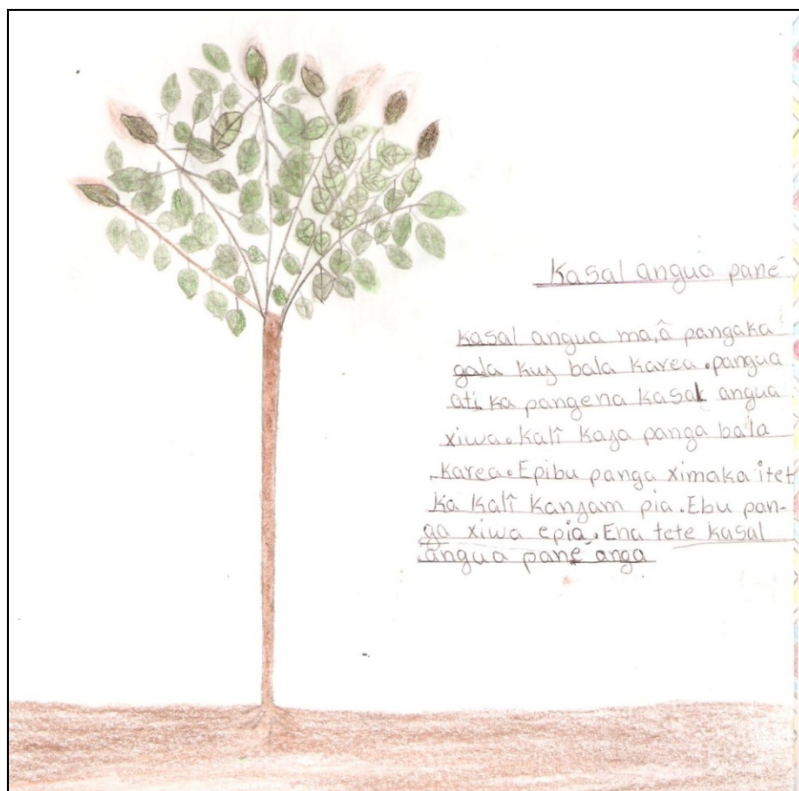 Kasal angua pane
Kasal angua ma,â pangaka
gala kus bala karea.pangua
ati ka pangena kasak angua
xiwa.kalî kaja panga bala
karea.Epibu panga ximaka itet
ka kalî kanjam pia.Ebu pan-
ga xiwa epia.Ena tete kasal
angua pane anga